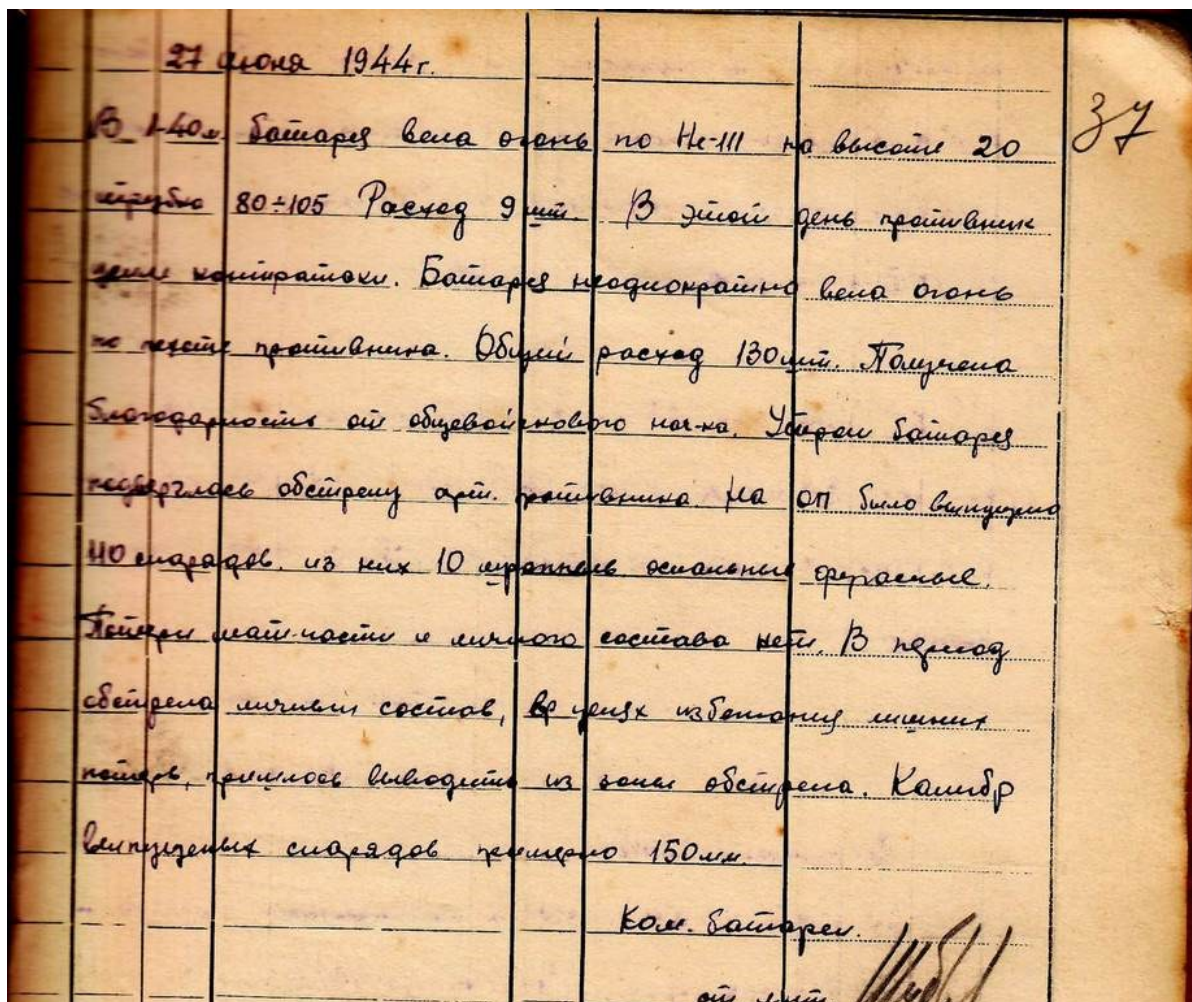 27 июня 1944 г.
37
В 1-40 м. батарея вела огонь по Не-111 на высоте 20
трубка 80÷105 Расход 9 шт. В этот день противник
контратаки. Батарея неоднократно вела огонь
по пехоте противника. Общий расход 130 шт. Получена
благодарность от общевойскового нач-ка. Утром батарея
подверглась обстрелу арт. противника. На ОП было выпущено
110 снарядов. из них 10 шрапнель остальные фугасные.
Потери мат-части и личного состава нет. В период
обстрела личный состав, в целях избежания лишних
потерь, пришлось выводить из зоны обстрела. Калибр
выпущенных снарядов примерно 150 мм.
Ком. батареи.